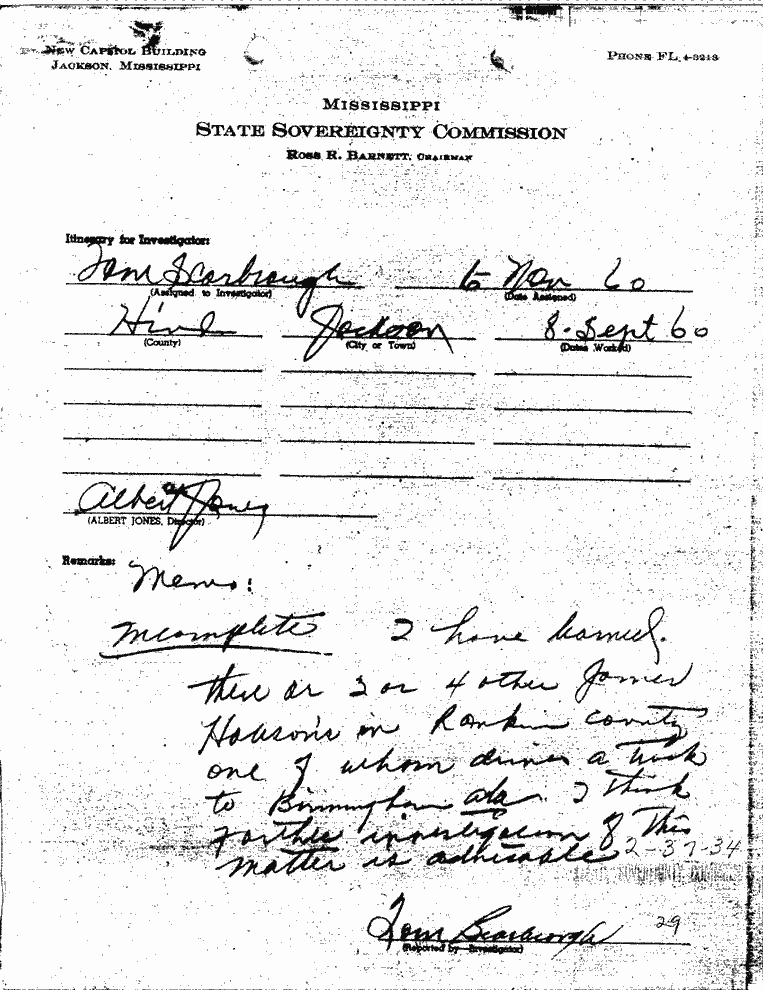 NEW CAPITOL BUILDING
JACKSON, MISSISSIPPI
PHONE FL 4-3213
MISSISSIPPI
STATE SOVEREIGNTY COMMISSION
ROSS R. BARNETT, CHAIRMAN
Itinerary for Investigator:
Tom Scarbrough to Nov 60
(Assigned to Investigator) (Date Assigned)
Hinds Jackson 8-Sept 60
(County) (City or Town) (Dates Worked)
Albert Jones
(ALBERT JONES, Director)
Remarks:
Memo:
Incomplete I have learned
there are 3 or 4 other James
Hobson's in Rankin county
one of whom drives a truck
to Birmingham Ala. I think
further investigation of this
matter is advisable
2-37-34
Tom Scarbrough 29
(Reported by Investigator)